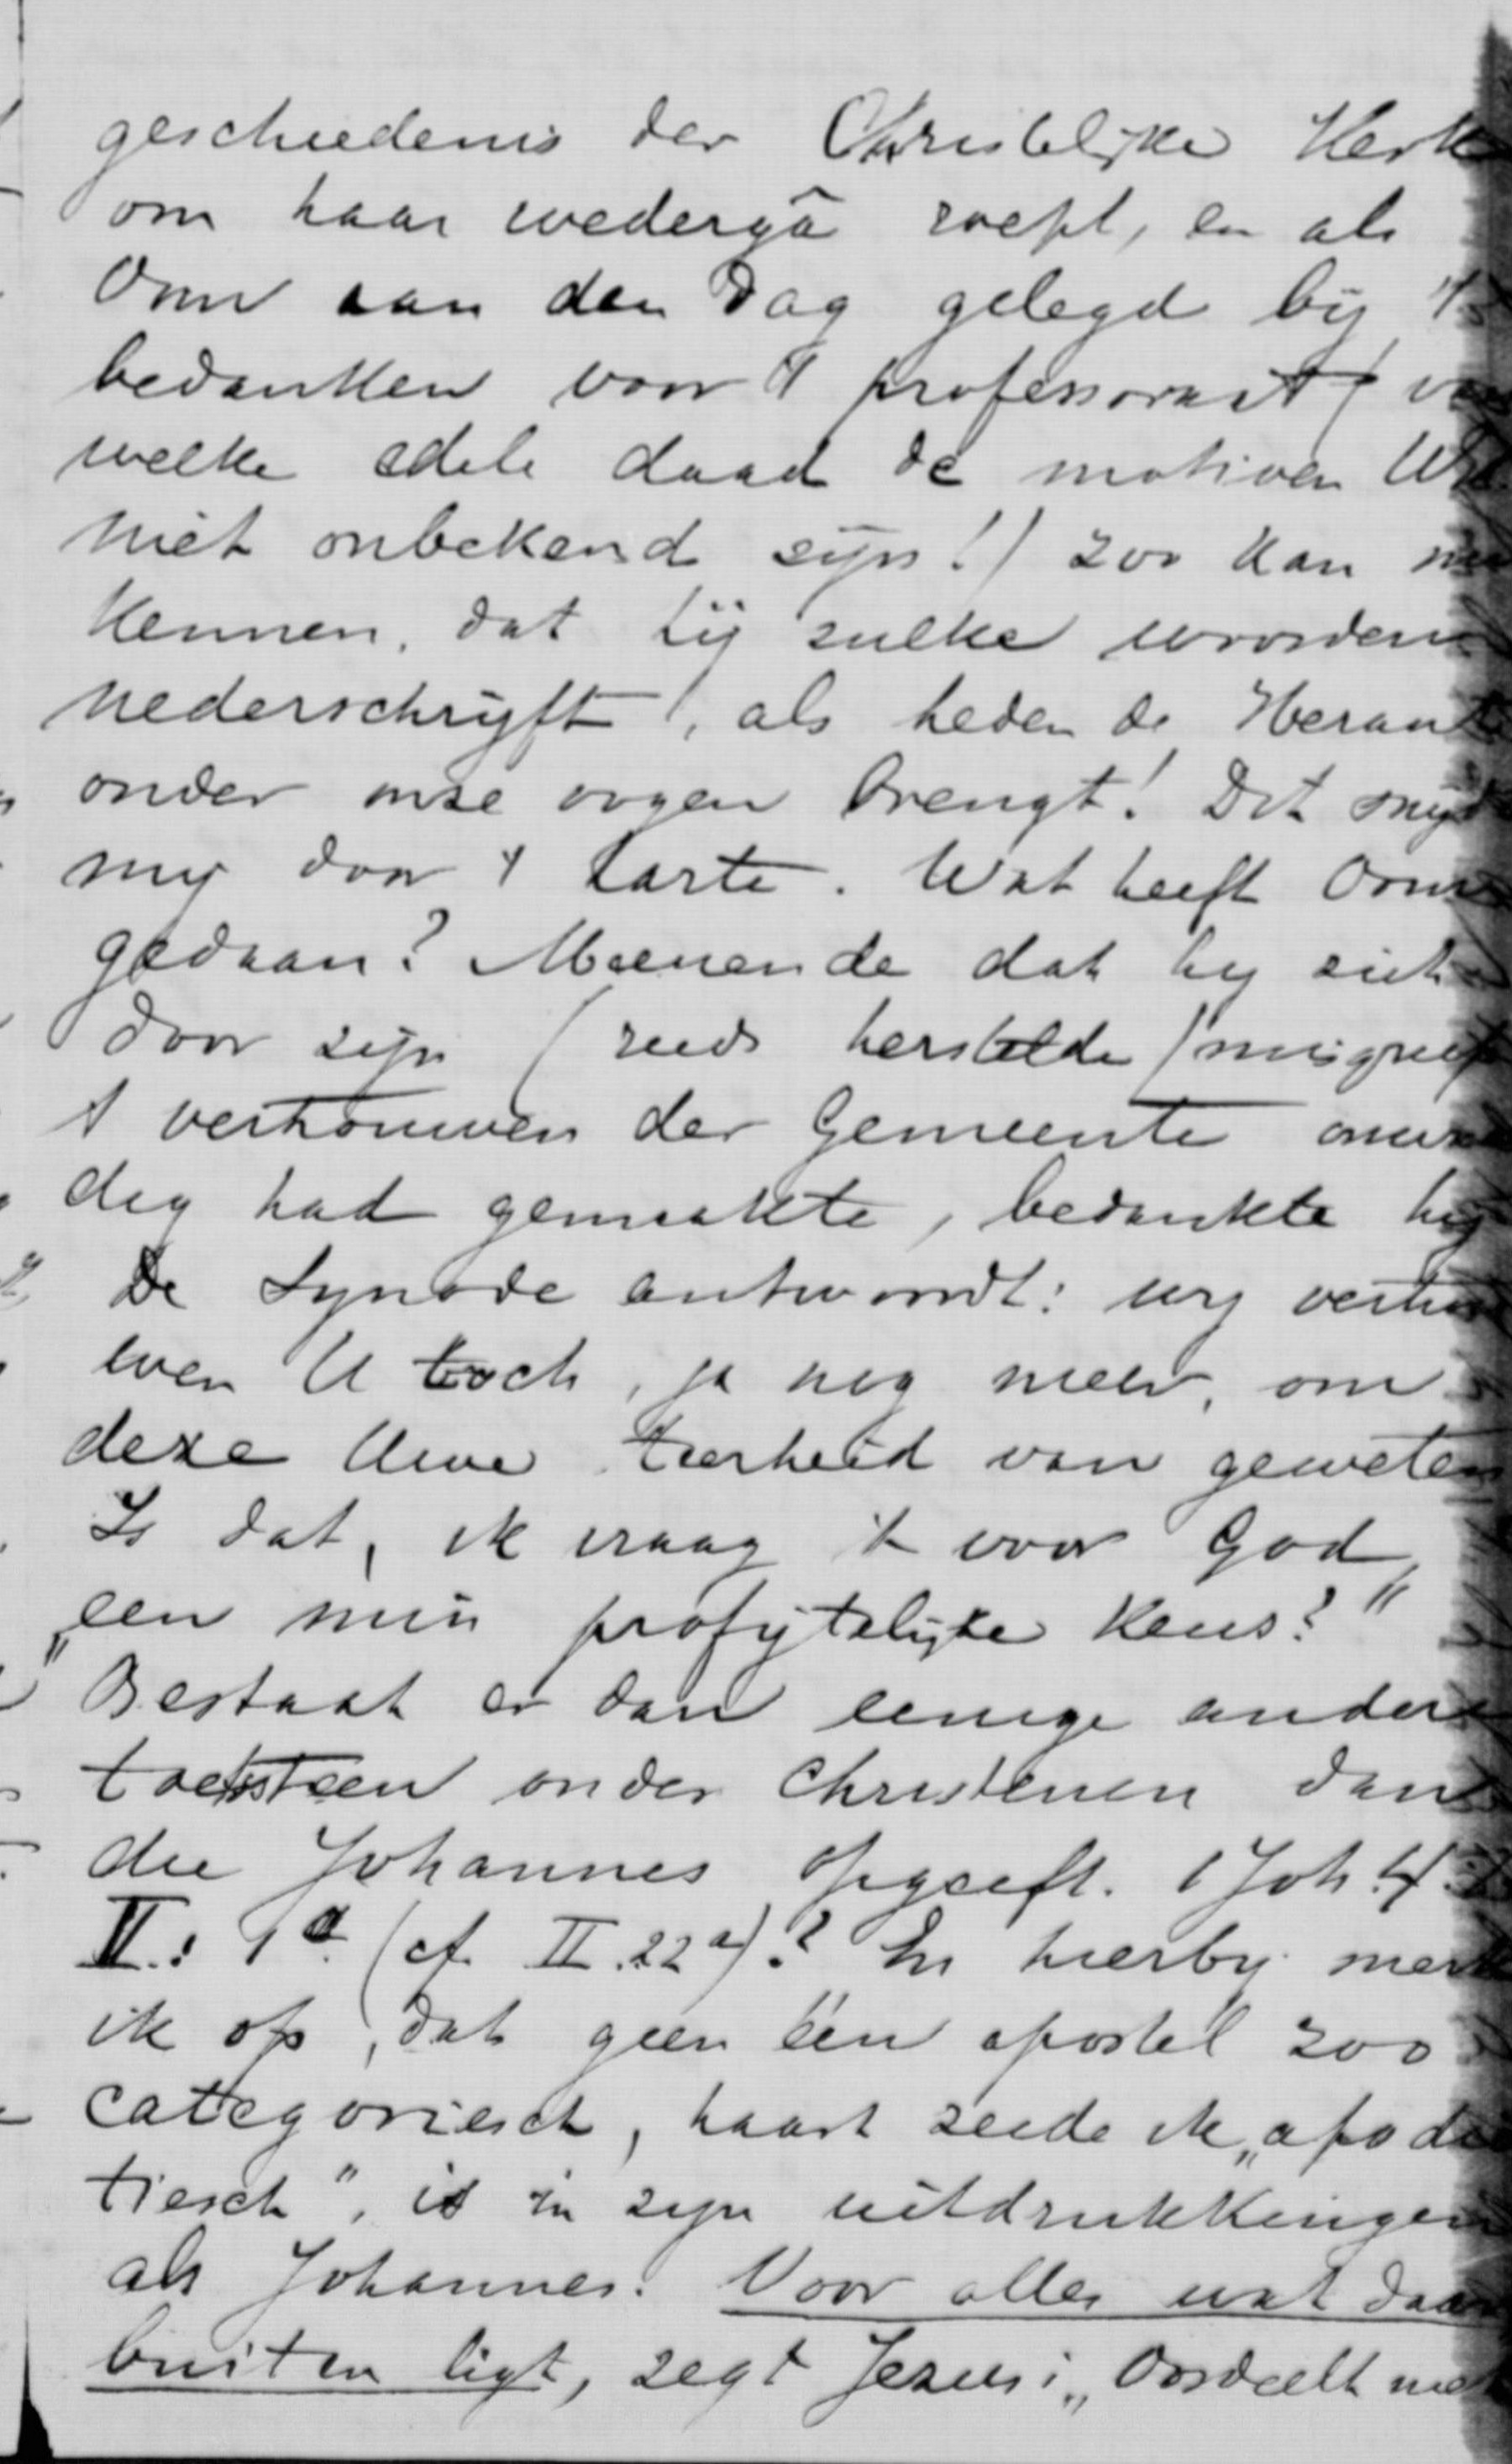 geschiedenis der Christelijke Kerk
om haar wedergâ roept, en als
Oom aan den Dag gelegd bij 't
bedanken voor 't professoraat (van
welke edele daad de motiven U
niet onbekend zijn!) zoo kan
kennen, dat hij zulke woorden
nederschrijft, als heden de Heraut
onder onze oogen brengt! Dit snijdt
mij door 't harte. Wat heeft Oom
gedaan? Meenende dat hij zich
door zijn (reeds herstelde) misgreep
't vertrouwen der Gemeente onwaar
dig had gemaakte, bedankte hij
De Synode antwoordt: wij vertrou
wen U toch, ja nog meer, om
deze Uwe teerheid van geweten
Is dat, ik vraag 't voor God,
"een min profijtelijke keus?"
Bestaat er dan eenige andere
toetssteen onder Christenen dan
die Johannes opgeeft. 1 Joh 4:
V: 1a (cf II.22a)? En hierbij merk
ik op, dat geen één apostel zoo
categoriesch, haast zeide ik „apodic
tiesch", is in zijn uitdrukkingen
als Johannes. Voor alles wat daar
buiten ligt, zegt Jezus: „Oordeelt niet